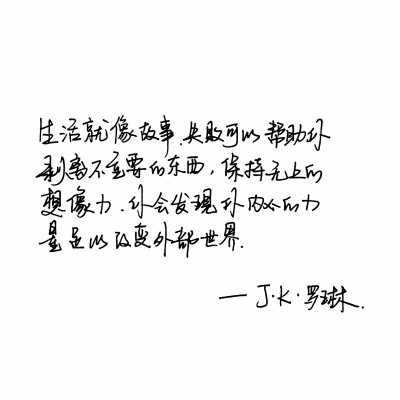 生活就像故事.失败可以帮助你
剥离不重要的东西,保持无上的
想像力.你会发现你内心的力
量足以改变外部世界.
— J·K·罗琳.